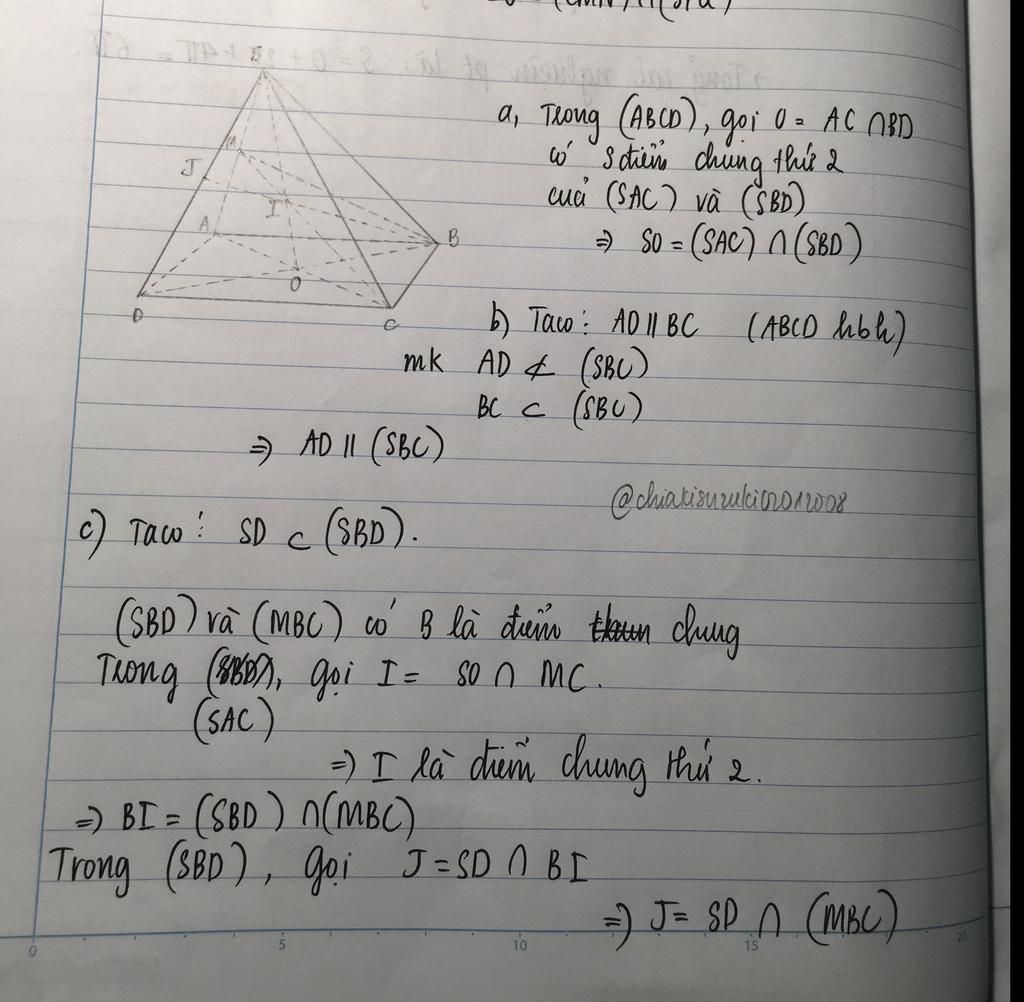 S
M
J
I
A
B
O
D
C
a, Trong (ABCD), gọi O = AC ∩ BD
có S điểm chung thứ 2
của (SAC) và (SBD)
⇒ SO = (SAC) ∩ (SBD)
b) Ta có: AD || BC (ABCD hbh)
mk AD ⊄ (SBC)
BC ⊂ (SBC)
⇒ AD || (SBC)
@chiakisuzuki02012008
c) Ta có: SD ⊂ (SBD).
(SBD) và (MBC) có B là điểm chung
Trong (SBD), gọi I = SO ∩ MC.
(SAC)
⇒ I là điểm chung thứ 2.
⇒ BI = (SBD) ∩ (MBC)
Trong (SBD), gọi J = SD ∩ BI
⇒ J = SD ∩ (MBC)
0 5 10 15 20